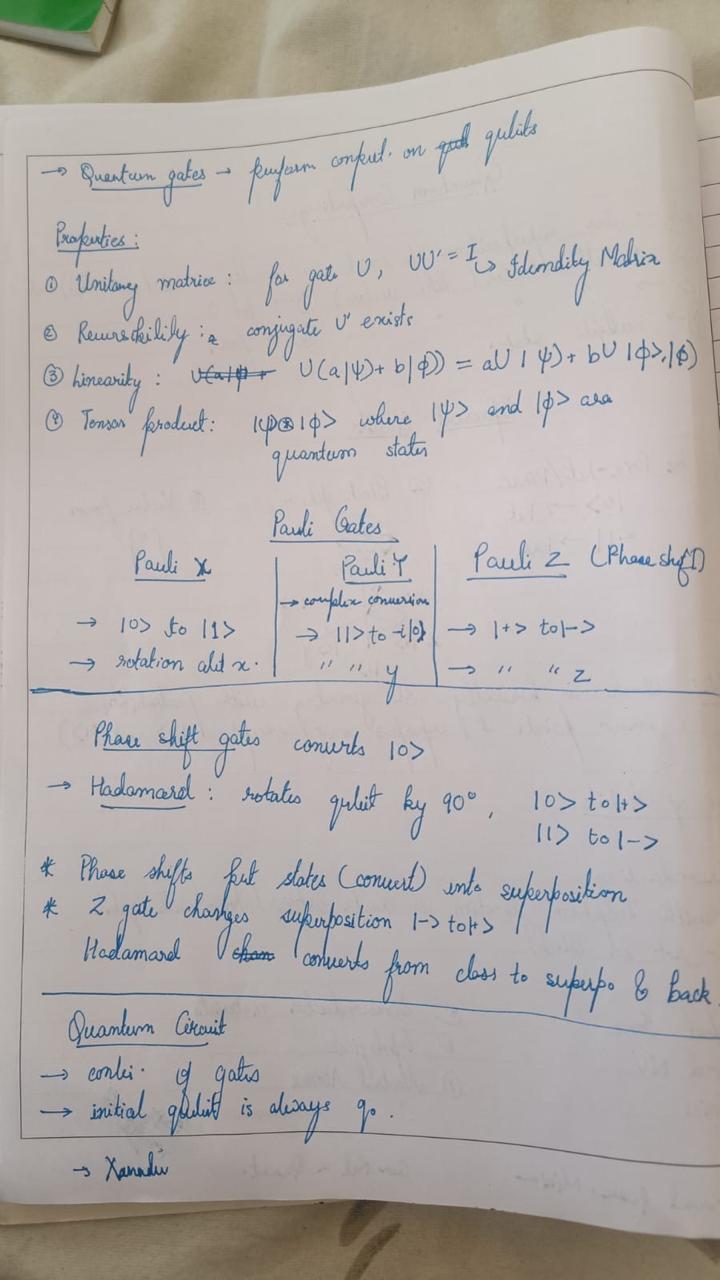 → Quantum gates → perform comput. on qubits
Properties:
① Unitary matrice: for gate U, UU' = I ↳ Idendity Matrix
② Reverskibility: conjugate U' exists
③ Linearity: U(a|ψ) + b|ϕ)) = aU|ψ) + bU|ϕ>,|ϕ)
④ Tensor product: |ψ⊗|ϕ> where |ψ> and |ϕ> are
quantum states
Pauli Gates
Pauli X
→ |0> to |1>
→ rotation abt x.
Pauli Y
→ complex conversion
→ |1> to -i|0>
" " y
Pauli Z (Phase shift)
→ |+> to |->
→ " " z
Phase shift gates converts |0>
→ Hadamard: rotates qubit by 90°, |0> to |+>
|1> to |->
* Phase shifts put states (convert) into superposition
* Z gate changes superposition |-> to |+>
Hadamard converts from class to superpo & back
Quantum Circuit
→ of gates
→ initial qubit is always q0.
→ Xanadu